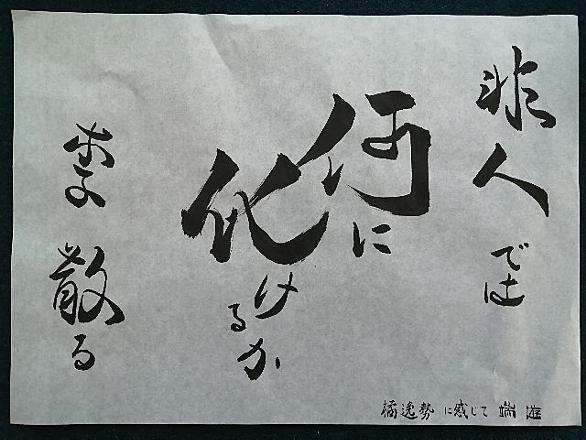 非人では
何に
化けるか
李散る
橘逸勢に感じて 端遊